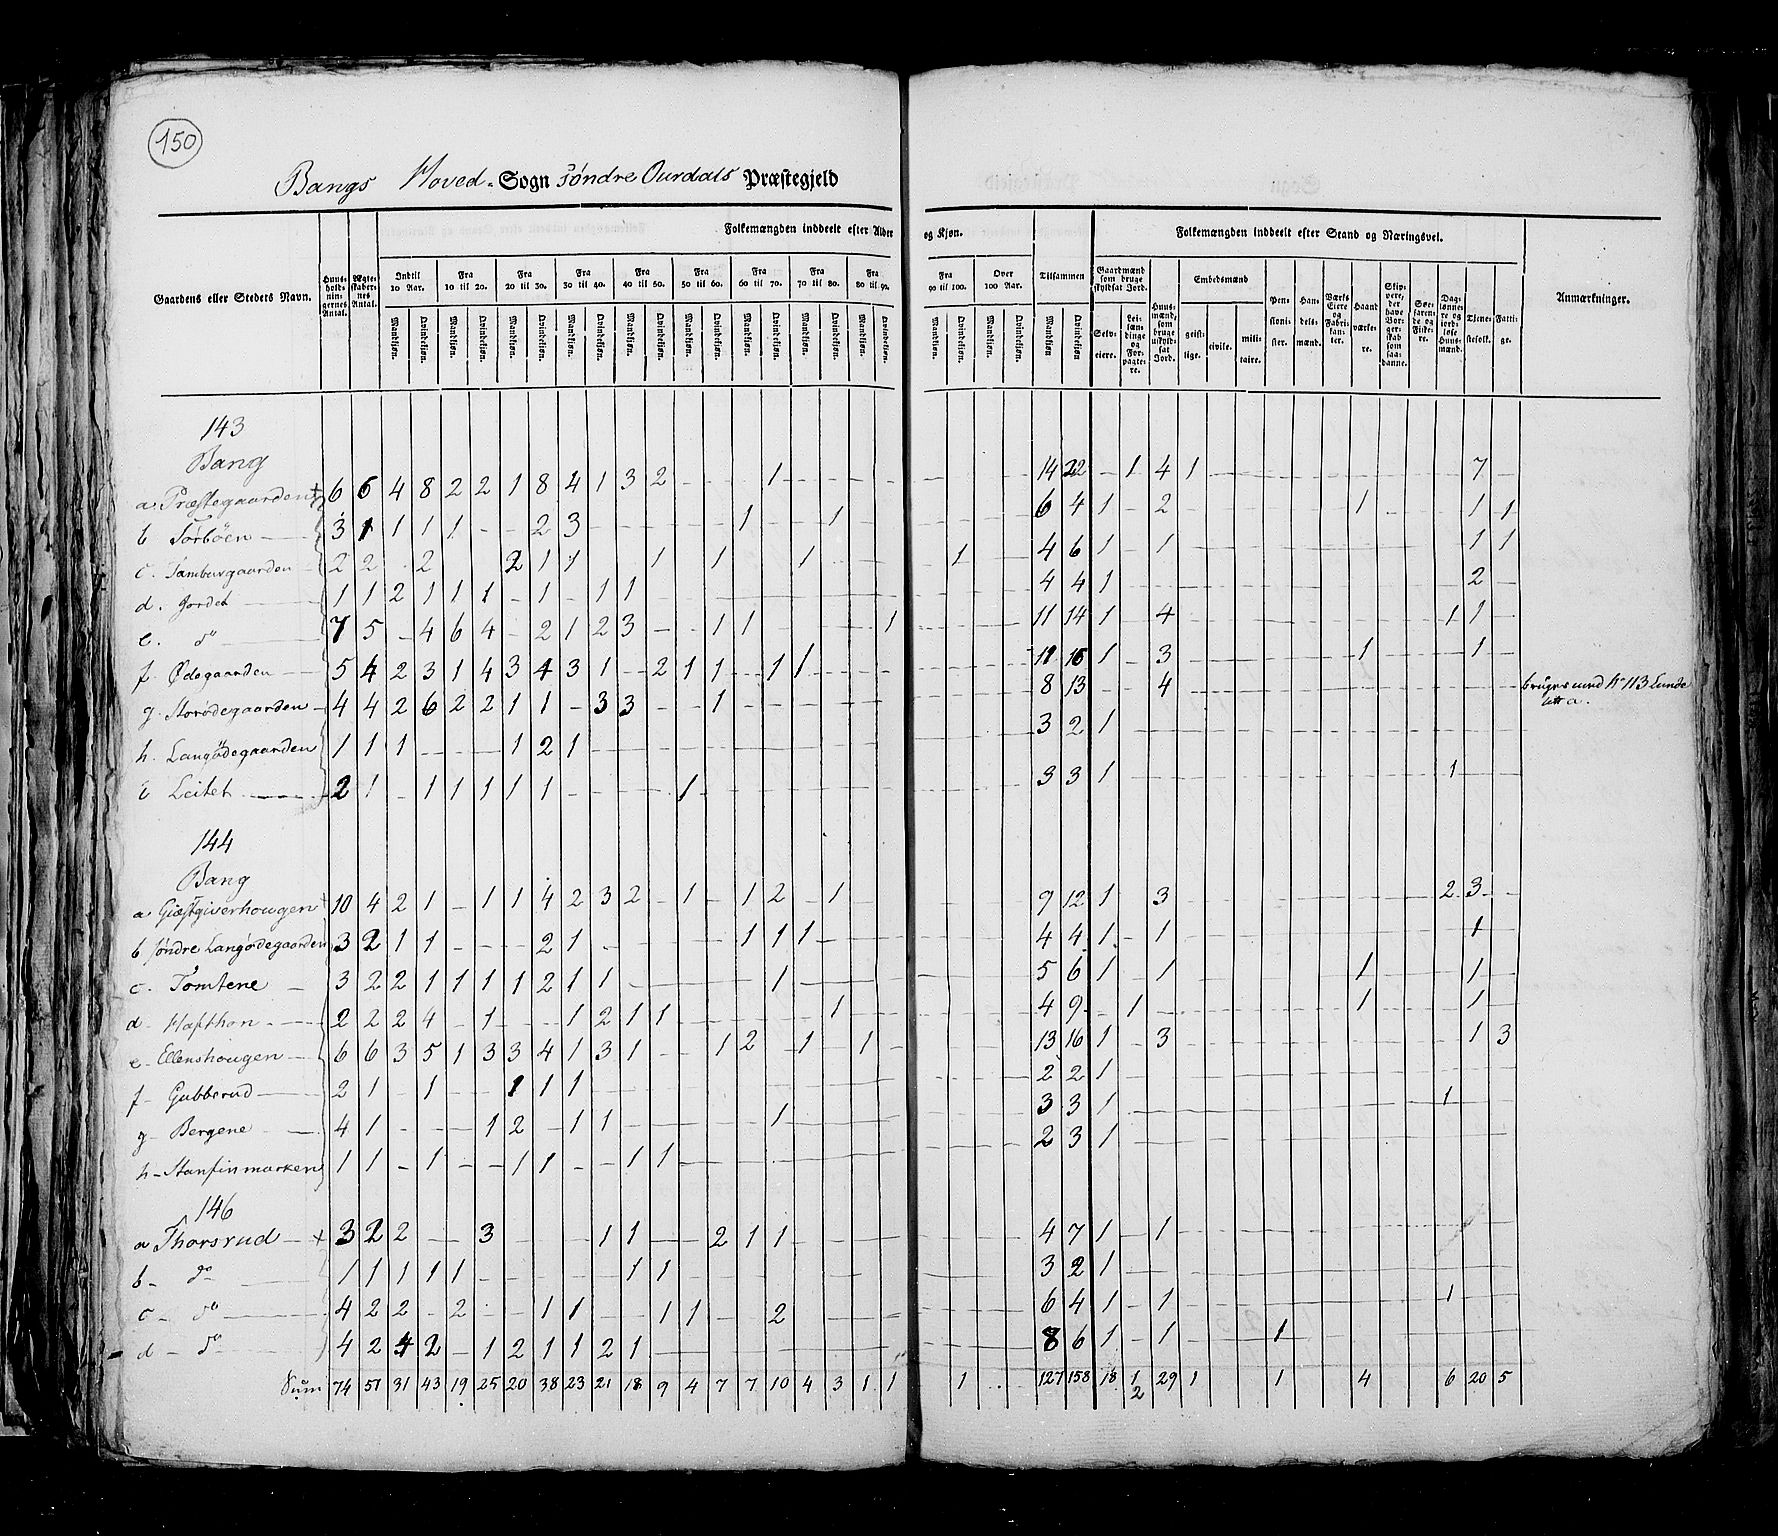 150
Bangs Hoved-Sogn Söndre Ourdals Præstegjeld
Folkemængden inddeelt efter Alder og Kjøn. Folkemængden inddeelt efter Stand og Næringsvei.
Gaardens eller Stedets Navn. Huusholdningernes Antal. Ægteskabernes Antal. Indtil 10 Aar. Fra 10 til 20. Fra 20 til 30. Fra 30 til 40. Fra 40 til 50. Fra 50 til 60. Fra 60 til 70. Fra 70 til 80. Fra 80 til 90. Fra 90 til 100. Over 100 Aar. Tilsammen Gaardmænd som bruge skyldsat Jord. Huusmænd, som bruge uskyldsat Jord. Embedsmænd Pensionister. Handelsmænd. Værks Eiere og Fabrikanter. Haandværkere. Skippere, der have Borgerskab som saadanne. Søefarende og Fiskere. Daglønnere og jordløse Huusmænd. Tjenestefolk. Fattige. Anmærkninger.
Mandkjøn. Qvindekjøn. Mandkjøn. Qvindekjøn. Mandkjøn. Qvindekjøn. Mandkjøn. Qvindekjøn. Mandkjøn. Qvindekjøn. Mandkjøn. Qvindekjøn. Mandkjøn. Qvindekjøn. Mandkjøn. Qvindekjøn. Mandkjøn. Qvindekjøn. Mandkjøn. Qvindekjøn. Mandkjøn. Qvindekjøn. Mandkjøn Qvindekjøn. Selveiere. Leilændinge og Forpagtere. geistlige. civile. militaire.
143
Bang
a. Præstegaarden + 6 6 4 8 2 2 1 8 4 1 3 2 - - - 1 - - - - - - - - 14 22 - 1 4 1 - - - - - - - - - 7 -
b Torböen 3 1 1 1 1 - - 2 3 - - - - - 1 - - 1 - - - - - - 6 4 1 - 2 - - - - - - 1 - - - 1 1
c. Tamburgaarden 2 2 . 2 2 1 1 1 1 1 1 4 6 1 - 1 - - - - - - - - - - 1 1
d. Jordet 1 1 2 1 1 1 - 1 - 1 1 - - - - - - - - - - - - - 4 4 1 2 -
e. do 7 5 - 4 6 4 - 2 1 2 3 - - 1 1 - - - - 1 - - - - 11 14 1 - 4 - - - - - - - - - 1 1 -
f. Ødegaarden 5 4 2 3 1 4 3 4 3 1 - 2 1 1 - 1 1 - - - - - - - 11 16 1 - 3 - - - - - - 1 - - - 1 -
g. Storödegaarden 4 4 2 6 2 2 1 1 - 3 3 - - 1 - - - - - - - - - - 8 13 - - 4 - - - - - - - - - - - - bruges med No 113 Lunde
Litt a.
h. Langödegaarden 1 1 1 - - - 1 2 1 - - - - - - - - - - - - - - - 3 2 1
i Leitet 2 1 - 1 1 1 1 1 - - - - 1 - - - - - - - - - - - 3 3 1 - - - - - - - - - - - 1 - -
144
Bang
a Giæstgiverhougen + 10 4 2 1 - 1 1 4 2 3 2 - 1 - 1 2 - 1 - - - - - - 9 12 1 - 3 - - - - - - - - - 2 3 -
b söndre Langödegaarden 3 2 1 1 - - - 2 1 - - - - - 1 1 1 - - - - - - - 4 4 1 - 1 - - - - - - - - - - 1 -
c. Tomtene 3 2 2 1 1 1 1 2 1 1 - - - - - 1 - - - - - - - - 5 6 1 - 1 - - - - - - 1 - - - 1 -
d. Hafthon 2 2 2 4 - 1 - - 1 2 1 1 - - - - - 1 - - - - - - 4 9 - 1 - - - - - - - 1 - - - 1 -
e. Ellenshougen 6 6 3 5 1 3 3 4 1 3 1 - - 1 2 - 1 - 1 - - - - - 13 16 1 - 3 - - - - - - - - - - 1 3
f- Gubberud 2 1 - 1 1 1 1 - - - - - - - - - - - - - - - 2 2 1 - - - - - - - - - - - - - -
g- Bergene 4 1 - - - 1 2 - 1 1 - - - - - 1 - - - - - - - - 3 3 1 - - - - - - - - - - - 1 - -
h- Stanfinmarken 1 1 - 1 - - 1 1 - - 1 1 - - - - - - - - - - - - 2 3 1 - - - - - - - - - - - - - -
146
a Thorsrud + 3 2 2 - - 3 1 1 - - 2 1 1 - - - - - - - - 4 7 1 - 1 - - - - - - - - - - - -
b- do 1 1 1 1 1 - - - - - 1 1 - - - - - - - - - - - - 3 2 1 - - - - - - - - - - - - - -
c- do 4 2 2 - 2 - - 1 1 - - 1 1 - - 2 - - - - - - - - 6 4 1 - 1 - - - - - - - - - 1 - -
d- do 4 2 4 2 - 1 2 1 1 2 1 - - - - - - - - - - - - - 8 6 1 - 1 - - - 1 - - - - - - - -
Sum 74 51 31 43 19 25 20 38 23 21 18 9 4 7 7 10 4 3 1 1 1 127 158 18 1 29 1 1 4 6 20 5
2